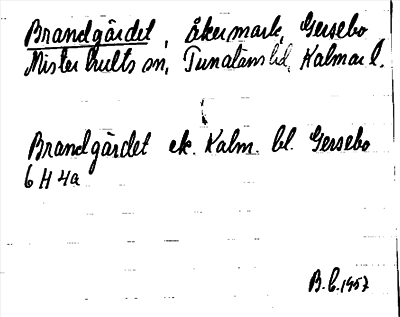 Brandgärdet, åkermark, Gersebo
Misterhults sn, Tunaläns hd, Kalmar l.
Brandgärdet ek. Kalm. bl. Gersebo
6 H 4a
B.C. 1957